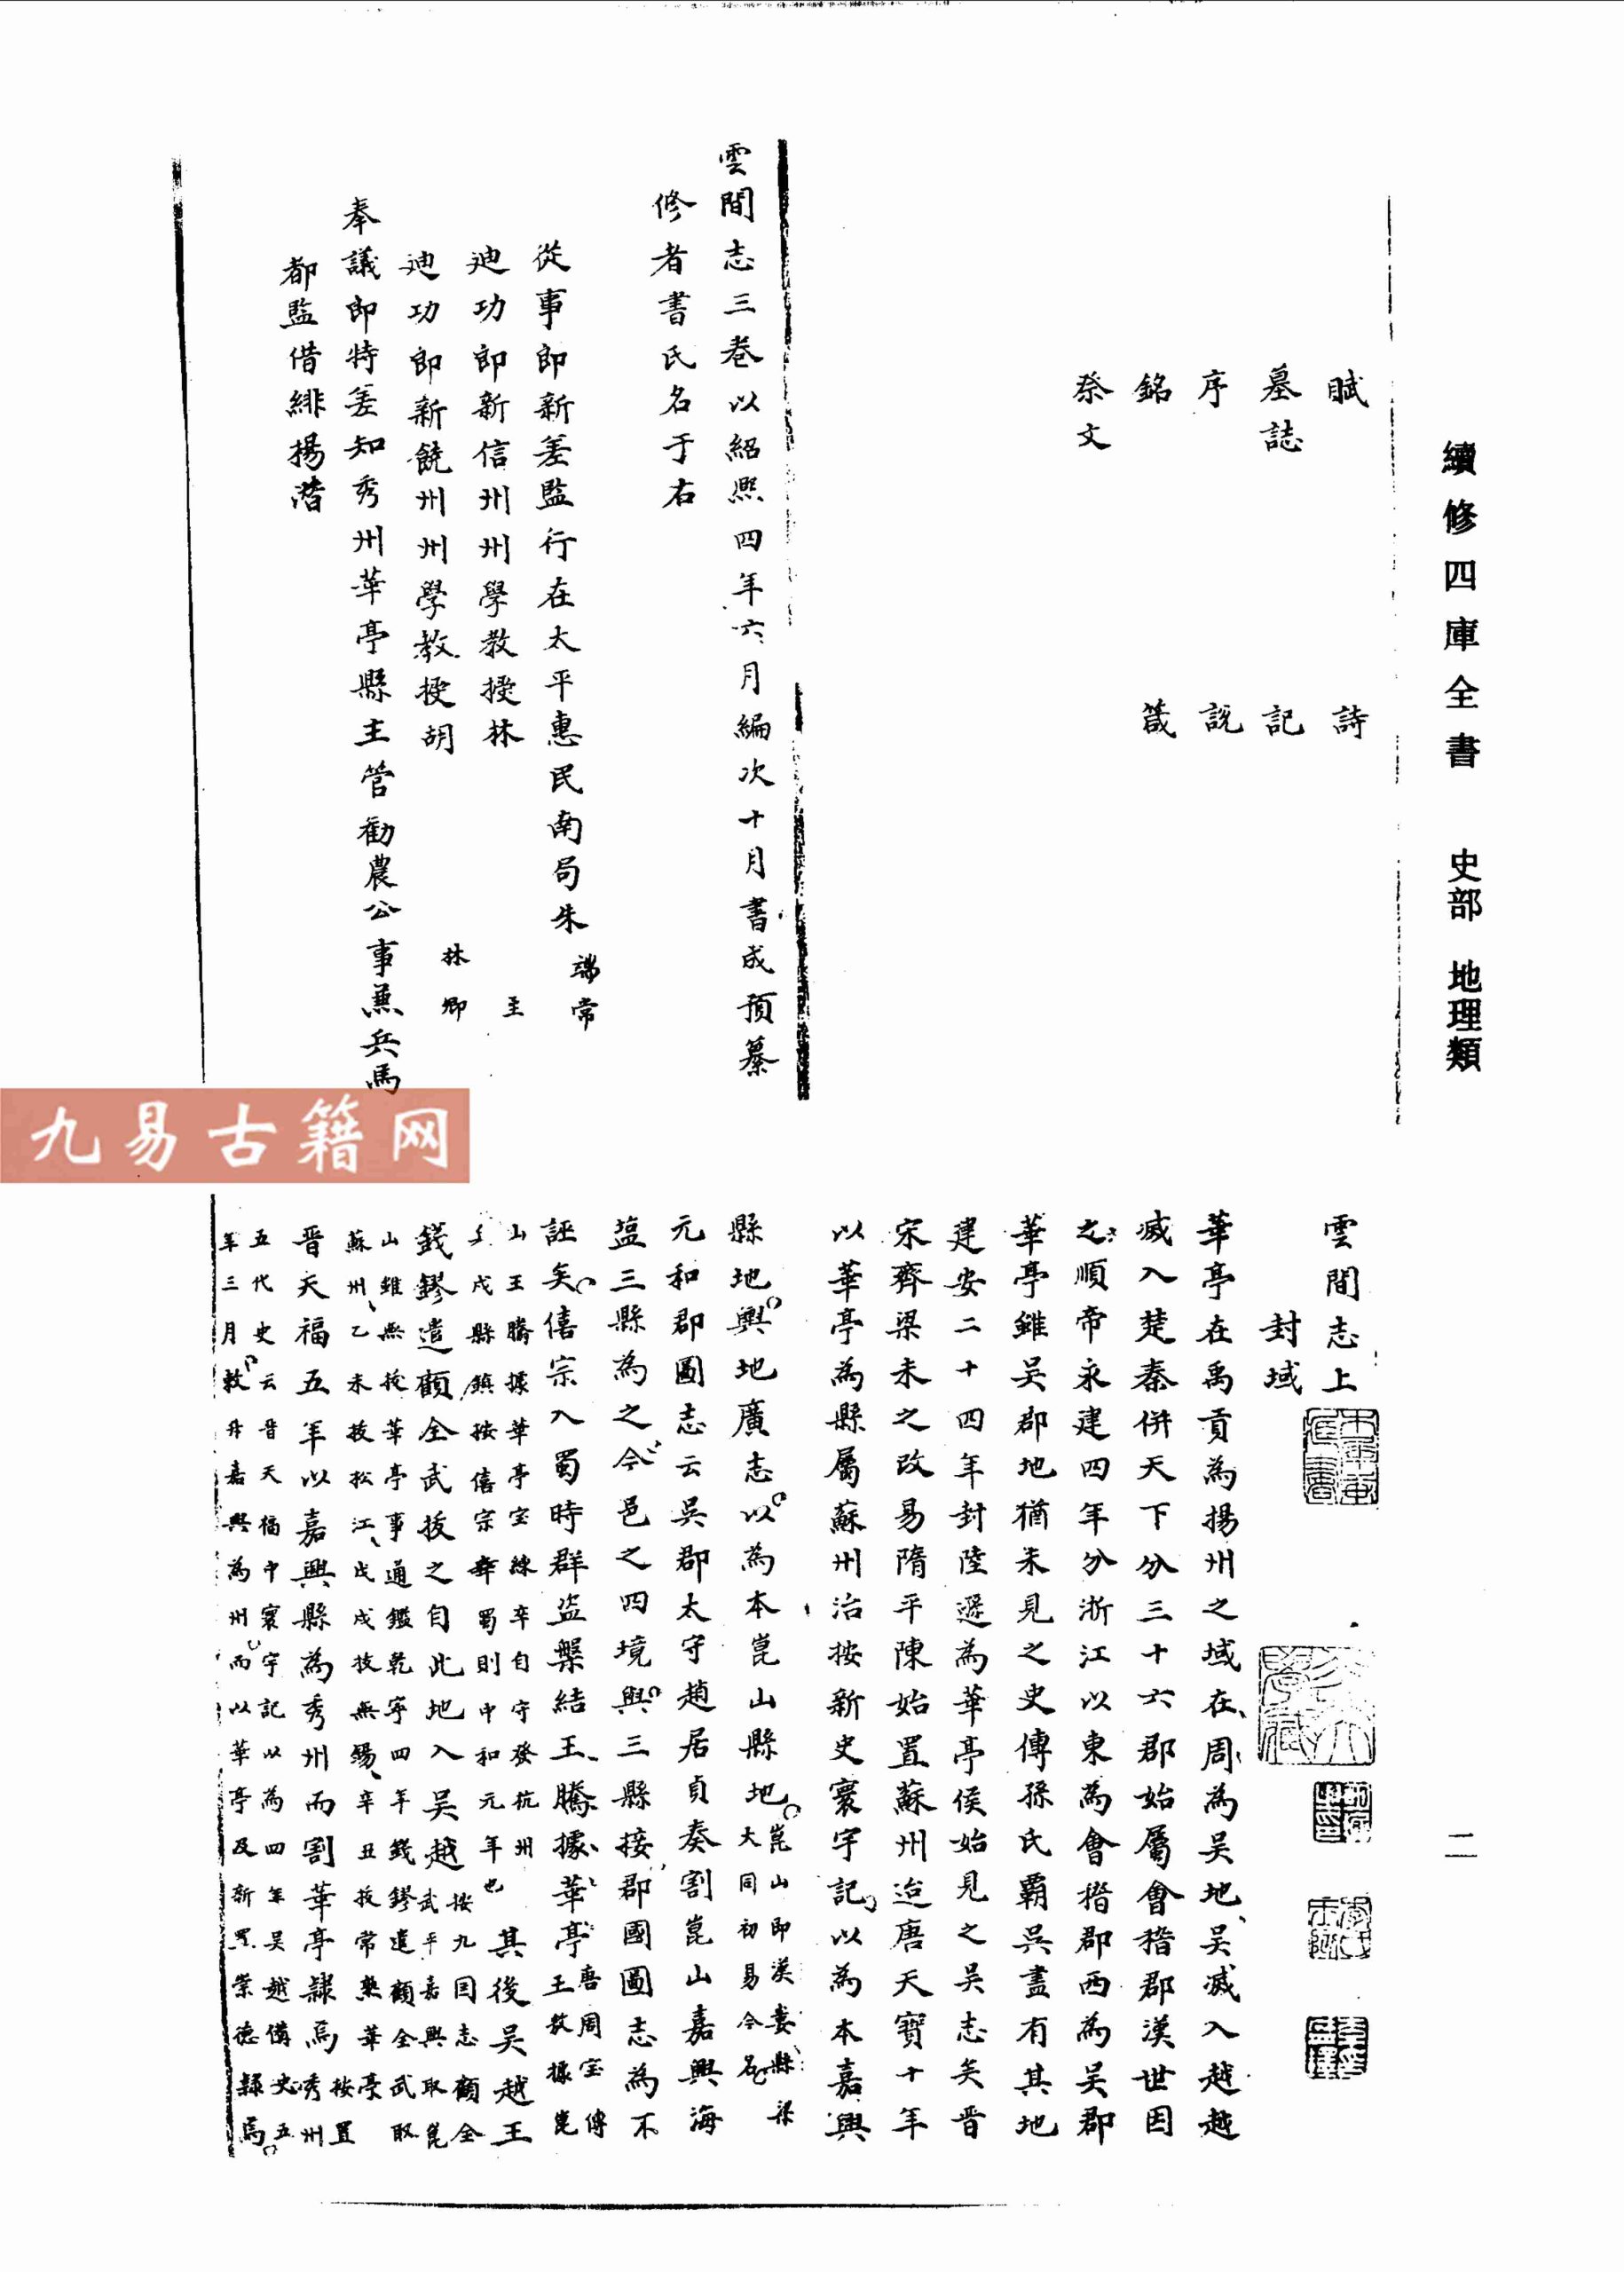 續修四庫全書 史部 地理類
二
賦 詩
墓誌 記
序 説
銘 箴
祭文
雲間志三卷以紹熙四年六月編次十月書成預纂
修者書氏名于右
從事郎新差監行在太平惠民南局朱端常
迪功郎新信州州學教授林至
迪功郎新饒州州學教授胡林卿
奉議郎特差知秀州華亭縣主管勸農公事兼兵馬
都監借緋楊潛
九易古籍网
雲間志上
封域
華亭在禹貢為揚州之域在周為吳地吳滅入越越
滅入楚秦併天下分三十六郡始屬會稽郡漢世因
之順帝永建四年分浙江以東為會稽郡西為吳郡
華亭雖吳郡地猶未見之史傳孫氏霸吳盡有其地
建安二十四年封陸遜為華亭侯始見之吳志矣晋
宋齊梁未之改易隋平陳始置蘇州迨唐天寶十年
以華亭為縣屬蘇州治按新史寰宇記以為本嘉興
縣地輿地廣志以為本崑山縣地崑山即漢婁縣梁大同初易今名
元和郡圖志云吳郡太守趙居貞奏割崑山嘉興海
盐三縣為之今邑之四境與三縣接郡國圖志為不
誣矣僖宗入蜀時群盗槃結王騰據華亭唐周宝傳王敖據崑
山王騰據華亭宝練卒自守發杭州戍縣鎮按僖宗幸蜀則中和元年也其後吳越王
錢鏐遣顧全武拔之自此地入吴越按九国志顧全武平嘉興取崑
山雖無拔華亭事通鑑乾寧四年錢鏐遣顧全武取蘇州乙未拔松江戊戌拔無錫辛丑拔常熟華亭
晋天福五年以嘉興縣為秀州而割華亭隷焉按置秀州
五代史云晋天福中寰宇記以為四年吴越備史五年三月敕升嘉興為州而以華亭及新置崇德隷焉